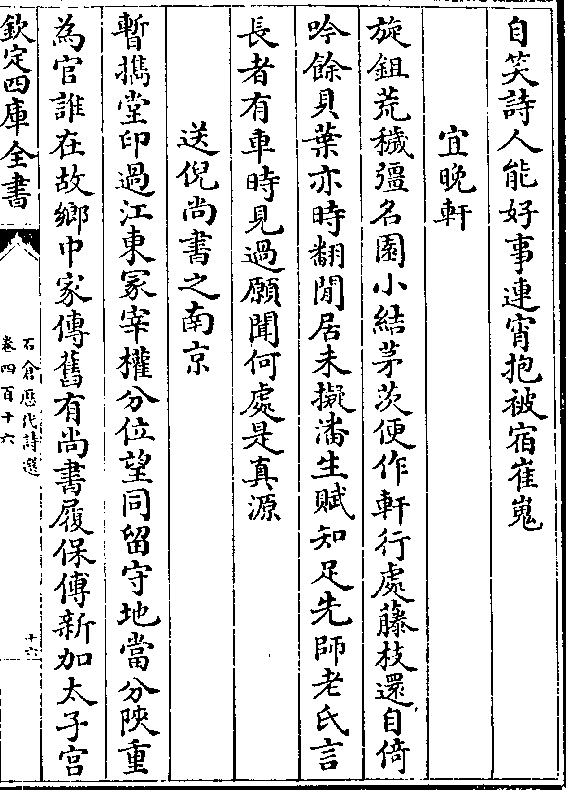 自笑詩人能好事連宵抱被宿崔嵬
宜晚軒
旋鉏荒穢彊名園小結茅茨便作軒行處藤枝還自倚
吟餘貝葉亦時翻閒居未擬潘生賦知足先師老氏言
長者有車時見過願聞何處是真源
送倪尚書之南京
暫攜堂印過江東冢宰權分位望同留守地當分陜重
為官誰在故鄉中家傳舊有尚書履保傅新加太子宫
欽定四庫全書
石倉歷代詩選
卷四百十六
十六